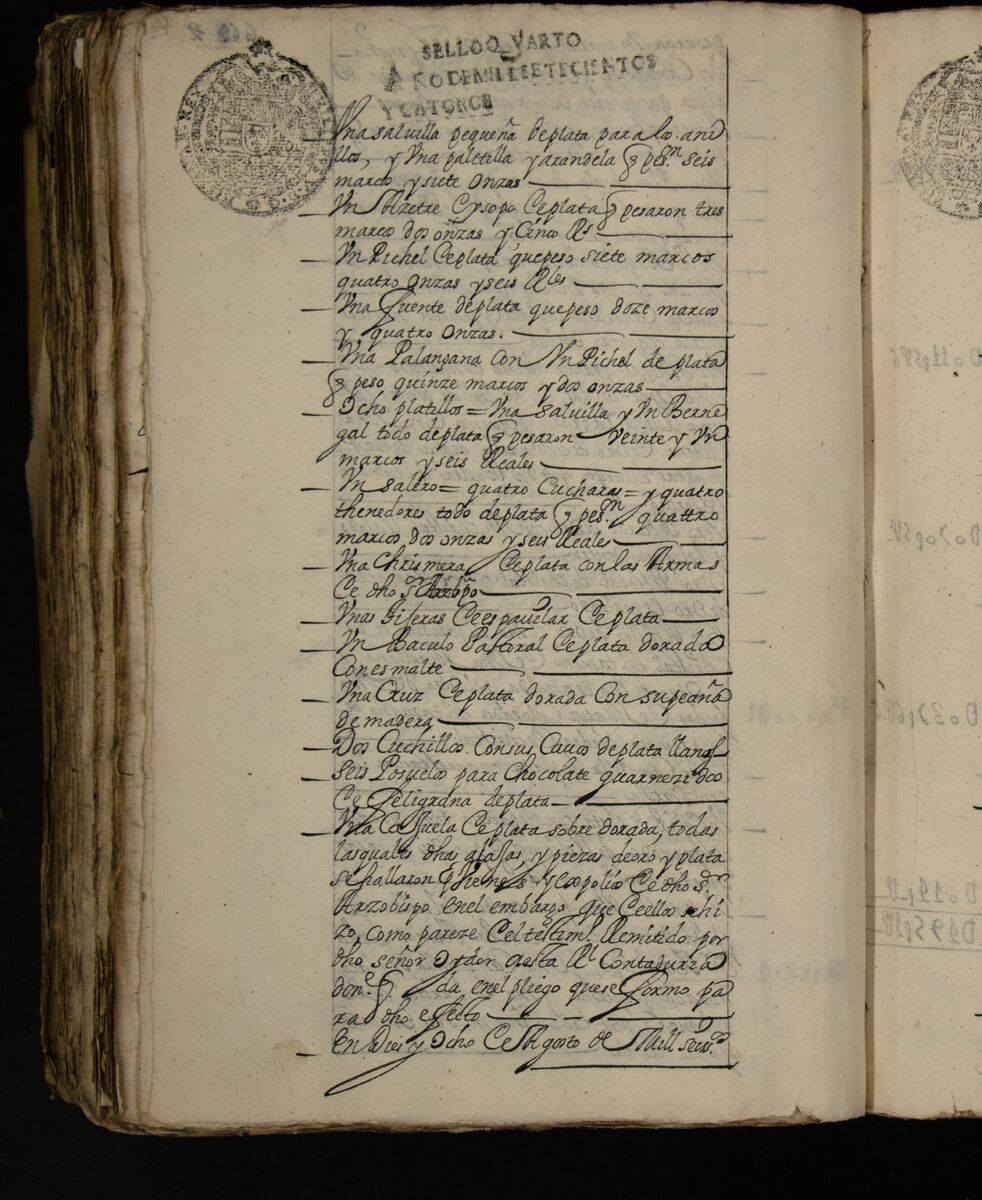 SELLO QVARTO
AÑO DE MIL SETECIENTOS
Y CATORCE
Vna salvilla pequeña de plata para los ani
llos, y Vna paletilla y arandela q̃ pes.ⁿ seis
marcos y siete onzas
Vn Azetre e ysopo de plata q̃ pesaron tres
marcos dos onzas y Cinco Rˢ
Vn Pichel de plata que peso siete marcos
quatro onzas y seis Rˡᵉˢ
Vna fuente de plata que peso doze marcos
y quatro onzas.
Vna Palangana con Vn Pichel de plata
q̃ peso quinze marcos y dos onzas
Ocho platillos = Vna salvilla y Vn Berne
gal todo de plata q̃ pesaron Veinte y Vn
marcos y seis Reales
Vn salero = quatro Cucharas = y quatro
thenedores todo de plata q̃ pes.ⁿ quattro
marcos dos onzas y seis Reales
Vna Chrismera de plata con las Armas
de dho s.ʳ Arzbpo
Vnas tiseras de espavilar de plata
Vn Baculo Pastoral de plata dorada
Con esmalte
Vna Cruz de plata dorada Con su peaña
de madera
Dos Cuchillos Con sus Cavos de plata llanos
Seis Posuelos para Chocolate guarnezidos
de feligrana de plata
Vna Casuela de plata sobre dorada, todas
las quales dhas alajas, y piezas de oro y plata
se hallaron p.ʳ bienes y espolios de dho s.ʳ
Arzobispo en el embargo que de ellos se hi
zo, como pareze del testim.º Remitido por
dho señor Oydor a esta R.ˡ Contaduria
don.ᵉ q.ᵈᵃ en el pliego que se formo pa
ra dho efecto
En Dies y Ocho de Agosto de Mill seis.ᵒˢ